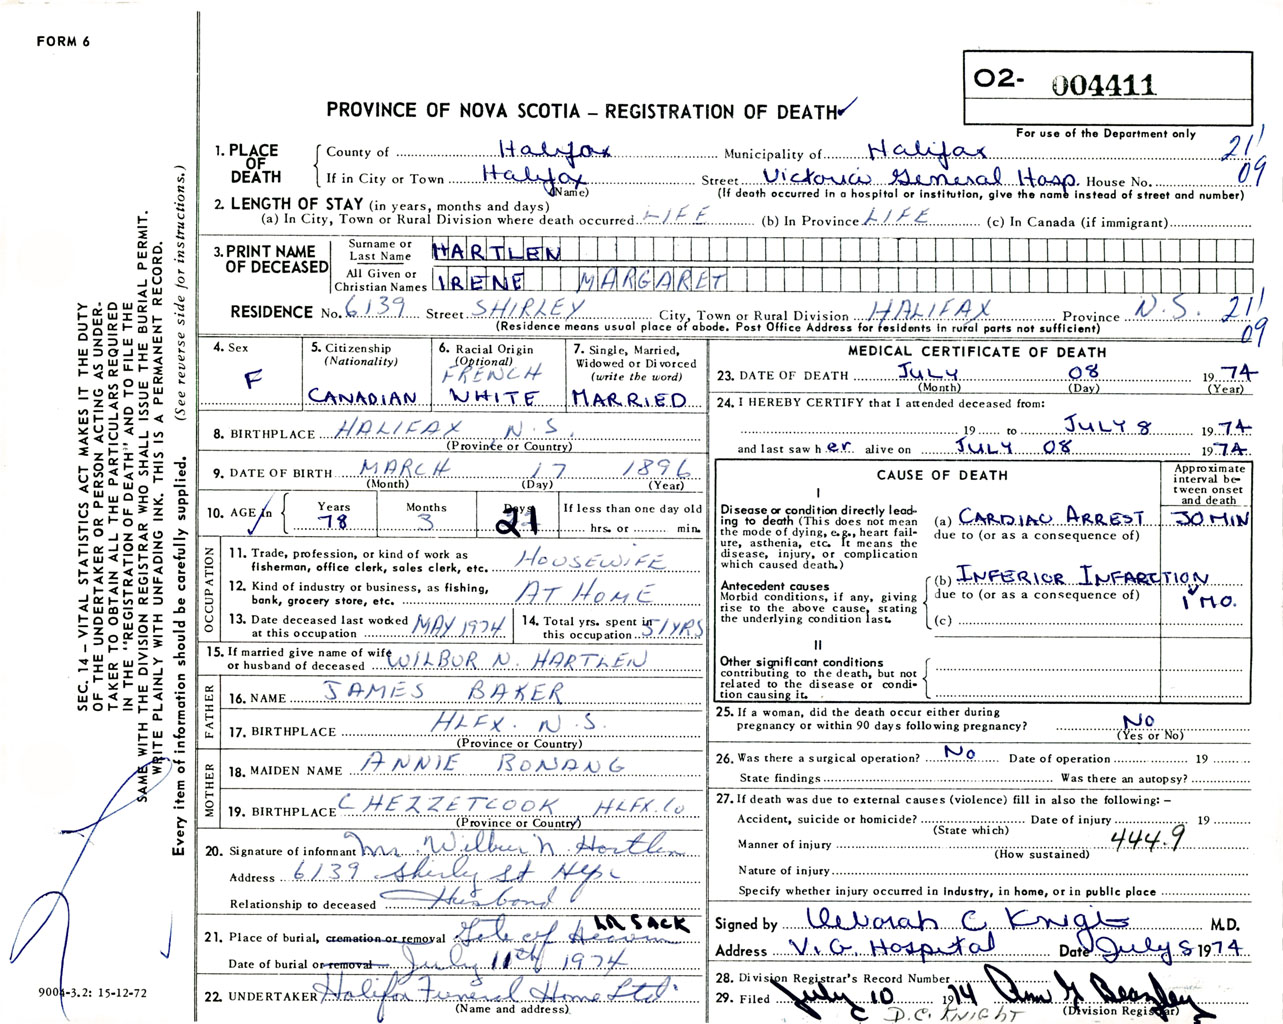 FORM 6
O2- 004411
PROVINCE OF NOVA SCOTIA – REGISTRATION OF DEATH
For use of the Department only
1. PLACE OF DEATH
County of Halifax Municipality of Halifax 21
If in City or Town Halifax Street Victoria General Hosp. House No. 09
(Name) (If death occurred in a hospital or institution, give the name instead of street and number)
2. LENGTH OF STAY (in years, months and days)
(a) In City, Town or Rural Division where death occurred LIFE (b) In Province LIFE (c) In Canada (if immigrant)
3. PRINT NAME OF DECEASED
Surname or Last Name HARTLEN
All Given or Christian Names IRENE MARGARET
RESIDENCE No. 6139 Street SHIRLEY City, Town or Rural Division HALIFAX Province N.S. 21
(Residence means usual place of abode. Post Office Address for residents in rural parts not sufficient) 09
4. Sex F
5. Citizenship (Nationality) CANADIAN
6. Racial Origin (Optional) FRENCH WHITE
7. Single, Married, Widowed or Divorced (write the word) MARRIED
8. BIRTHPLACE HALIFAX N.S.
(Province or Country)
9. DATE OF BIRTH MARCH 17 1896
(Month) (Day) (Year)
10. AGE in Years 78 Months 3 Days 21 If less than one day old hrs. or min.
OCCUPATION
11. Trade, profession, or kind of work as fisherman, office clerk, sales clerk, etc. HOUSEWIFE
12. Kind of industry or business, as fishing, bank, grocery store, etc. AT HOME
13. Date deceased last worked at this occupation MAY 1974
14. Total yrs. spent in this occupation 51 YRS
15. If married give name of wife or husband of deceased WILBUR N. HARTLEN
FATHER
16. NAME JAMES BAKER
17. BIRTHPLACE HLFX. N.S.
(Province or Country)
MOTHER
18. MAIDEN NAME ANNIE BONANG
19. BIRTHPLACE CHEZZETCOOK HLFX. CO
(Province or Country)
20. Signature of informant Mr. Wilbur N. Hartlen
Address 6139 Shirley St Hfx
Relationship to deceased Husband
21. Place of burial, cremation or removal Gate of Heaven LR SACK
Date of burial or removal July 11th 1974
22. UNDERTAKER Halifax Funeral Home Ltd.
(Name and address)
MEDICAL CERTIFICATE OF DEATH
23. DATE OF DEATH JULY 08 1974
(Month) (Day) (Year)
24. I HEREBY CERTIFY that I attended deceased from:
19 to JULY 8 1974
and last saw her alive on JULY 08 1974
CAUSE OF DEATH
Approximate interval between onset and death
I
Disease or condition directly leading to death (This does not mean the mode of dying, e.g., heart failure, asthenia, etc. It means the disease, injury, or complication which caused death.)
(a) CARDIAC ARREST 30 MIN
due to (or as a consequence of)
Antecedent causes
Morbid conditions, if any, giving rise to the above cause, stating the underlying condition last.
(b) INFERIOR INFARCTION
due to (or as a consequence of) 1 MO.
(c)
II
Other significant conditions contributing to the death, but not related to the disease or condition causing it.
25. If a woman, did the death occur either during pregnancy or within 90 days following pregnancy? NO
(Yes or No)
26. Was there a surgical operation? NO Date of operation 19
State findings Was there an autopsy?
27. If death was due to external causes (violence) fill in also the following: –
Accident, suicide or homicide? Date of injury 19
(State which)
Manner of injury 444.9
(How sustained)
Nature of injury
Specify whether injury occurred in industry, in home, or in public place
Signed by Deborah C Knight M.D.
Address V.G. Hospital Date July 8 1974
28. Division Registrar's Record Number
29. Filed July 10 1974
D.C. KNIGHT (Division Registrar)
SEC. 14 – VITAL STATISTICS ACT MAKES IT THE DUTY
OF THE UNDERTAKER OR PERSON ACTING AS UNDER-
TAKER TO OBTAIN ALL THE PARTICULARS REQUIRED
IN THE "REGISTRATION OF DEATH" AND TO FILE THE
SAME WITH THE DIVISION REGISTRAR WHO SHALL ISSUE THE BURIAL PERMIT.
WRITE PLAINLY WITH UNFADING INK. THIS IS A PERMANENT RECORD.
Every item of information should be carefully supplied. (See reverse side for instructions.)
9004-3.2: 15-12-72